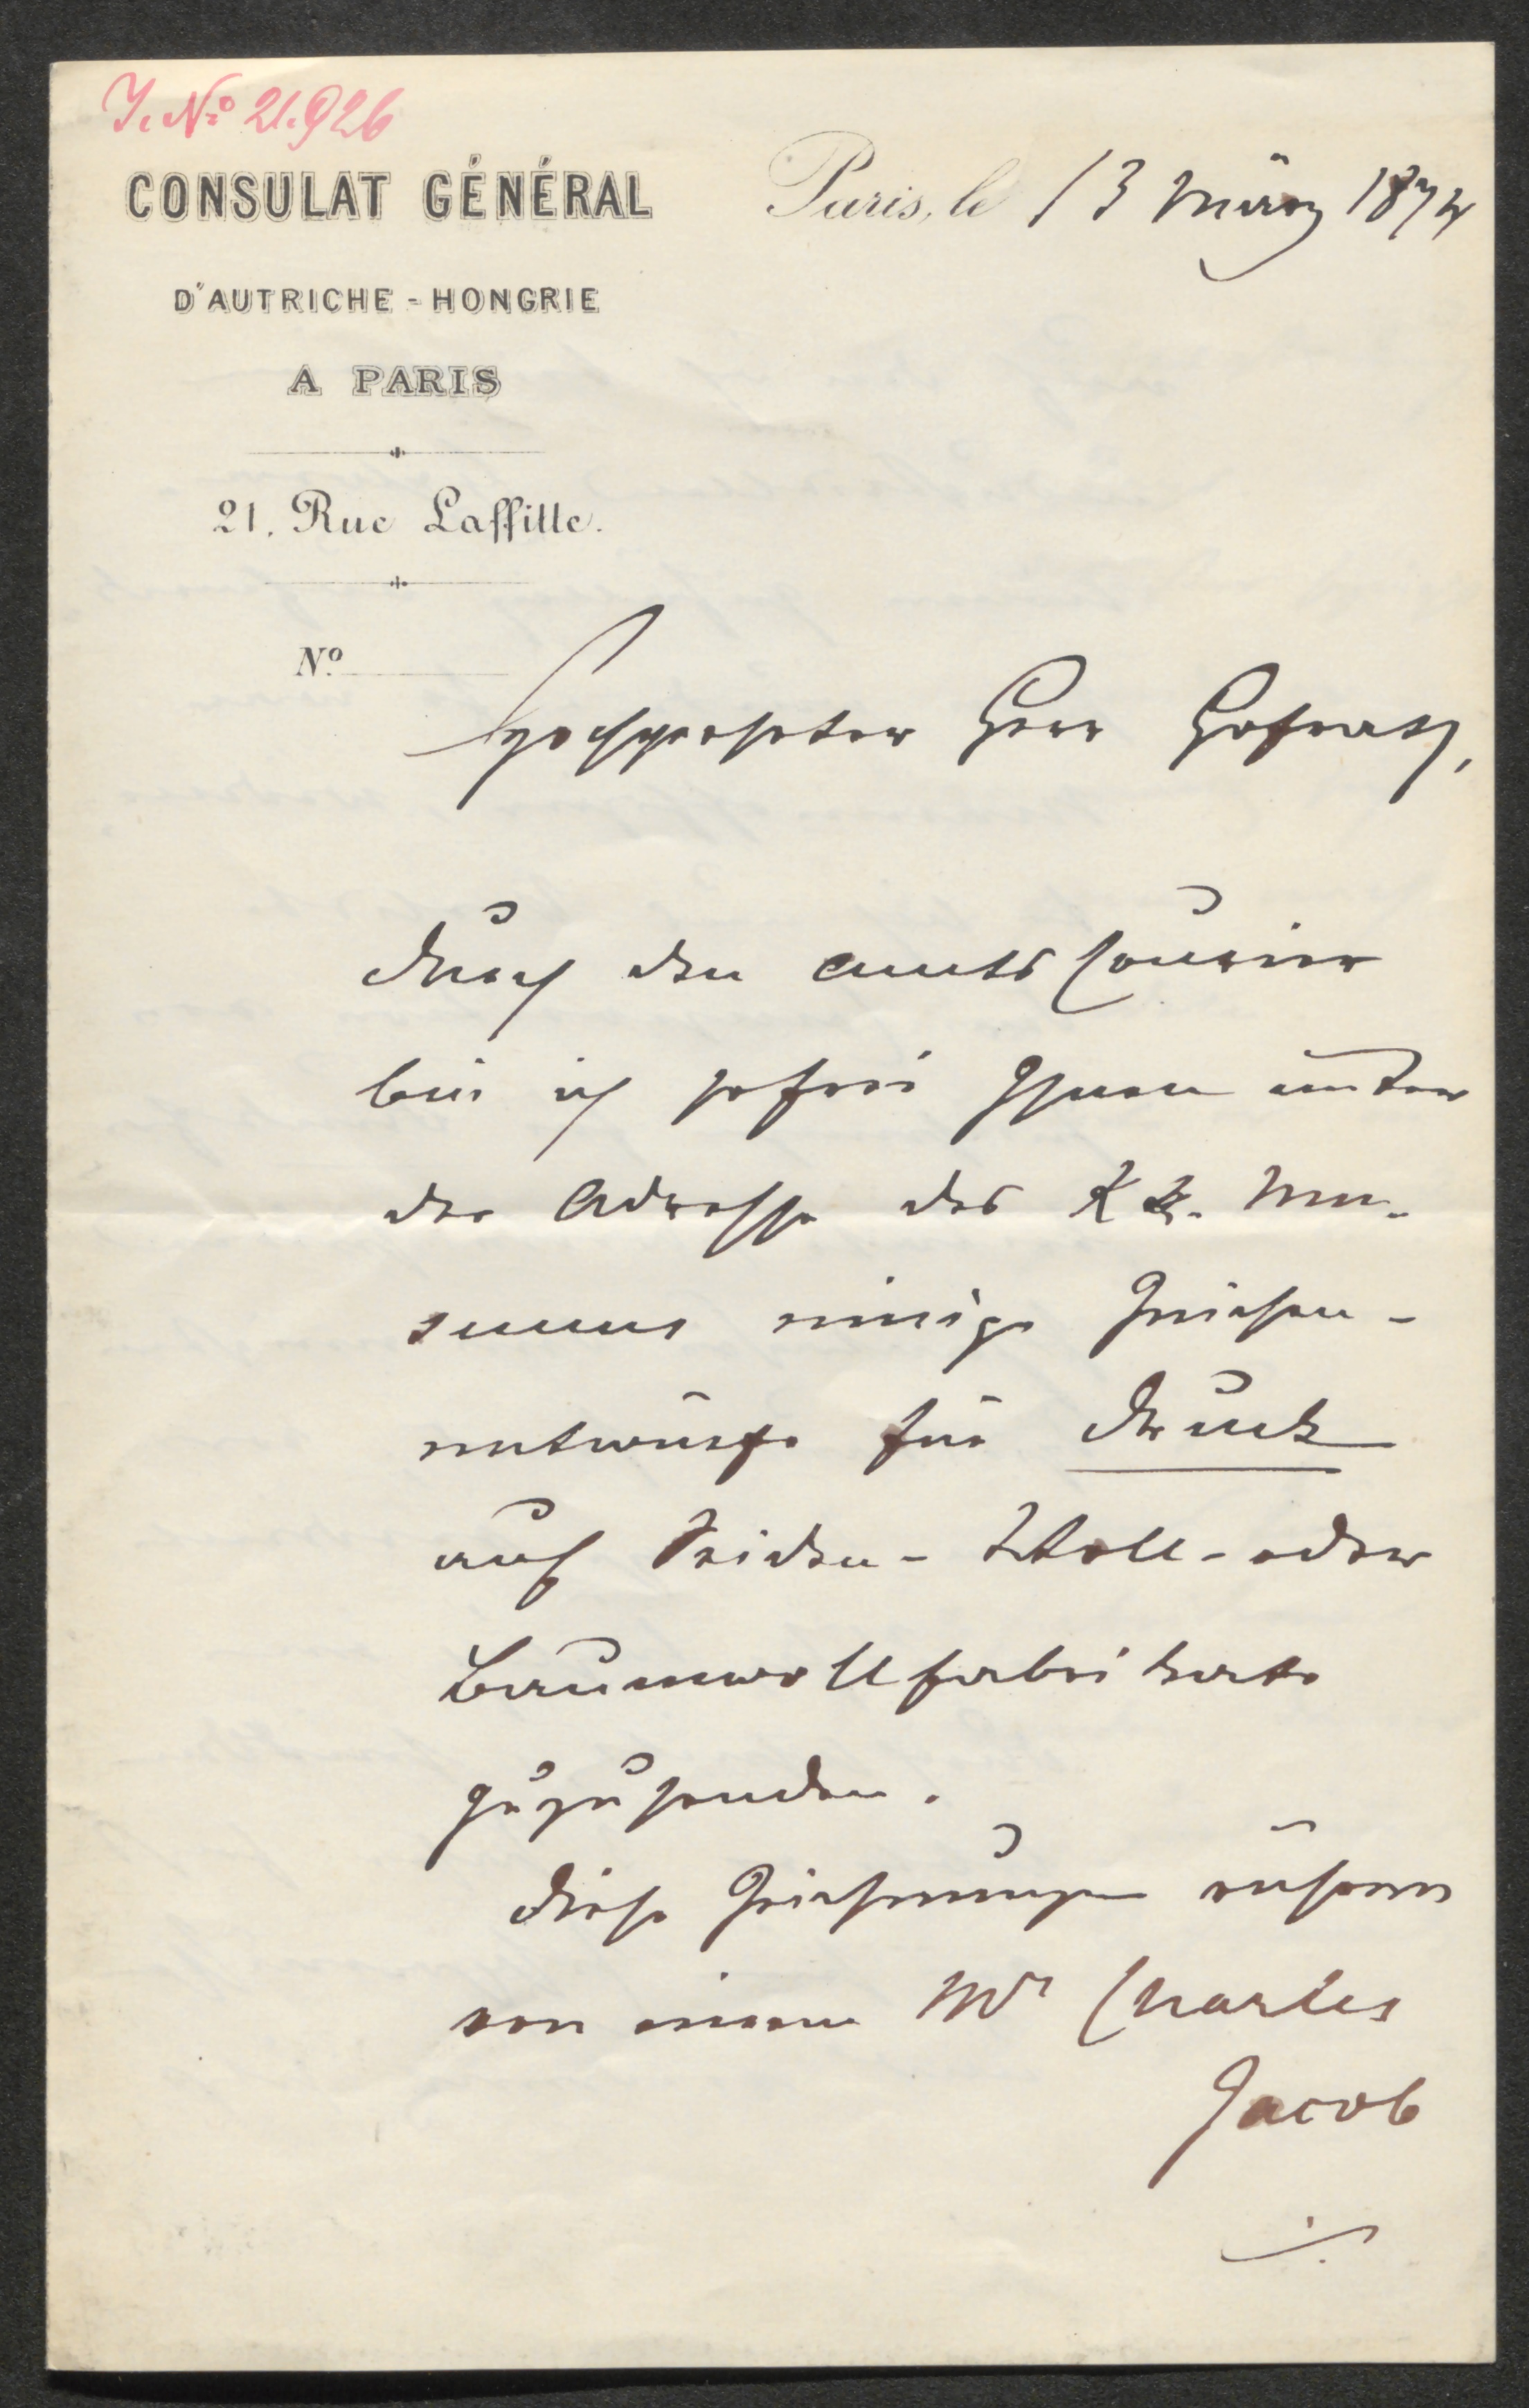 J. Nº 21.926
CONSULAT GÉNÉRAL
D'AUTRICHE - HONGRIE
A PARIS
21, Rue Laffitte.
Nº
Paris, le 13 März 1874
Hochgeehrter Herr Hofrath,
durch den Amts Courier
bin ich so frei Ihnen unter
der Adresse des K K. Mu-
seums einige Zeichen-
entwürfe für Druck
auf Seiden- Woll- oder
Baumwollfabrikate
zuzusenden.
Diese Zeichnungen rühren
von einem Mr Charles
Jacob